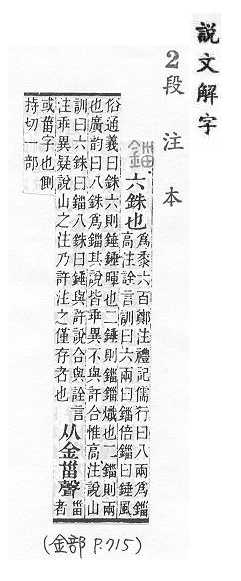 說文解字
2段注本
錙
六銖也
爲黍六百鄭注禮記儒行曰八兩爲錙
高注詮言訓曰六兩曰錙倍錙曰錘風
俗通義曰銖六則錘錘暉也二錘則錙錙熾也二錙則兩
也廣韵曰八銖爲錙其說皆乖異不與許合惟高注說山
訓曰六銖曰錙八銖曰錘與許說合與詮言
注乖異疑說山之注乃許注之僅存者也
从金甾聲
甾
者
或菑字也側
持切一部
(金部 P.715)